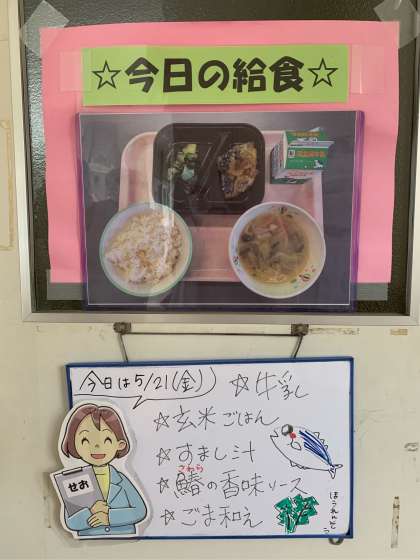 ☆今日の給食☆
今日は5/21(金)
☆牛乳
☆玄米ごはん
☆すまし汁
さわら
☆鰆の香味ソース
☆ごま和え
せお
ほうれんそう